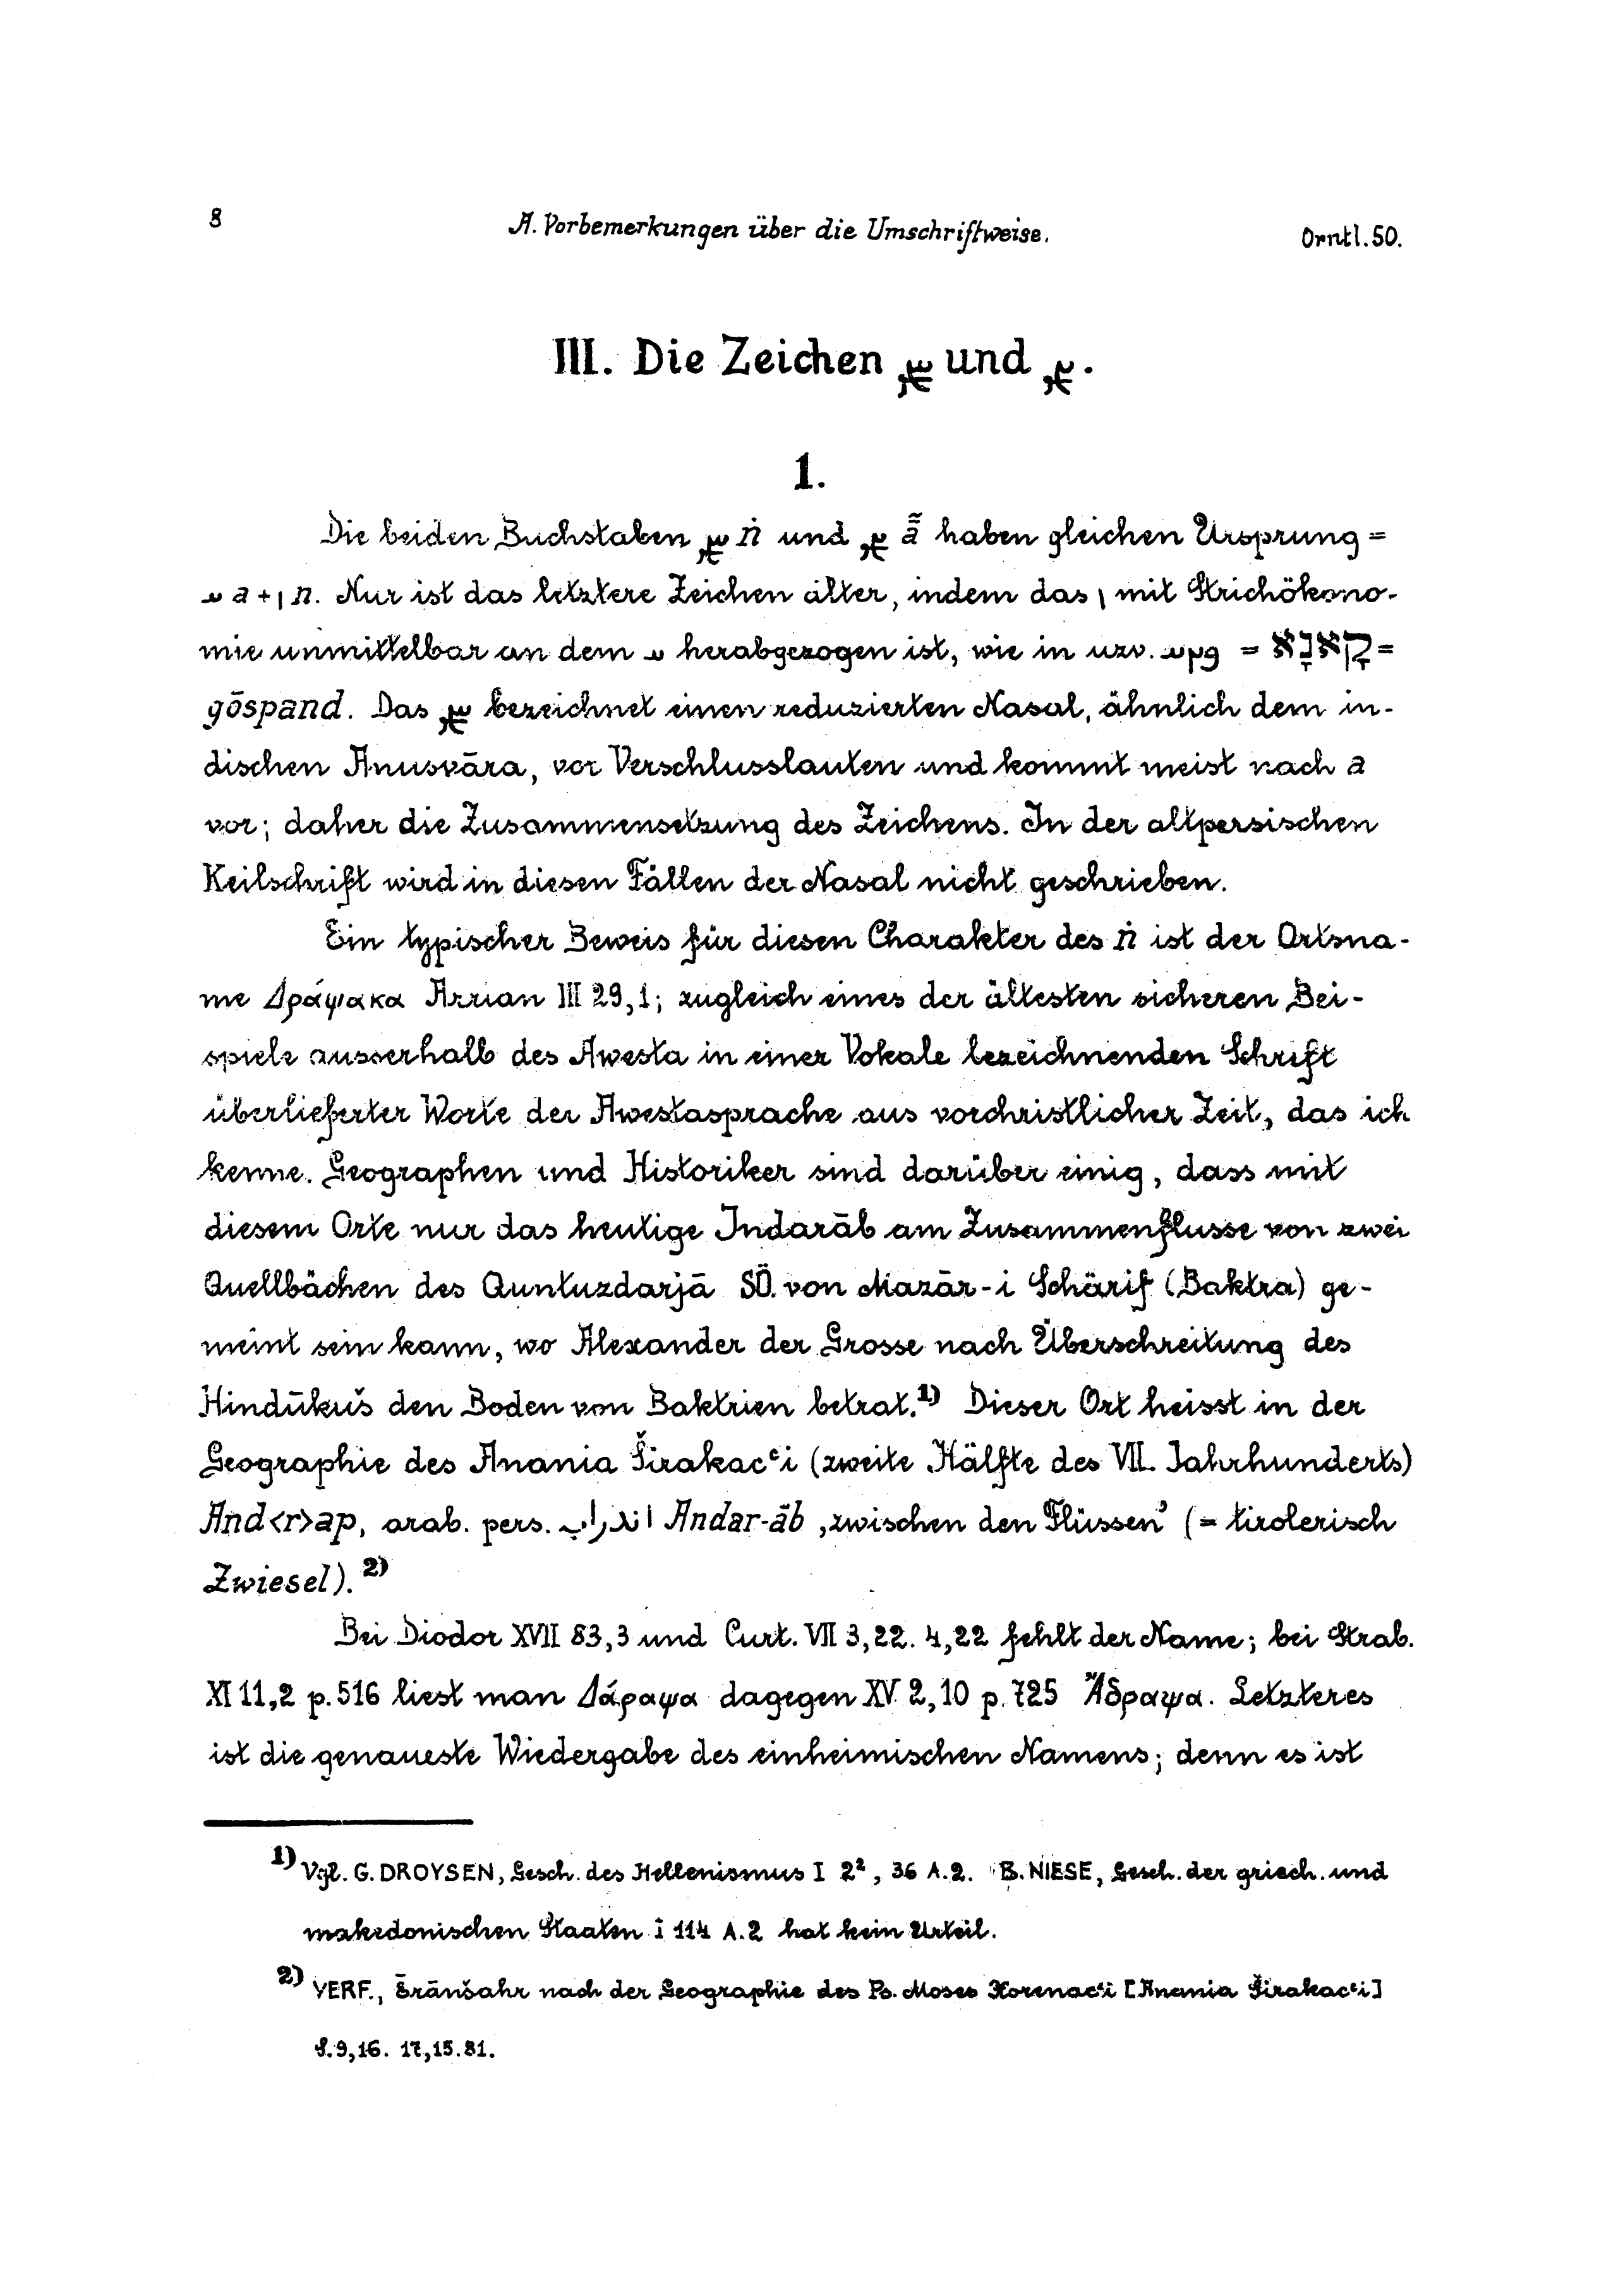 8 A. Vorbemerkungen über die Umschriftweise. Orntl. 50.
III. Die Zeichen und .
1.
Die beiden Buchstaben ṅ und ā̃ haben gleichen Ursprung =
a + n. Nur ist das letztere Zeichen älter, indem das mit Strichökono-
mie unmittelbar an dem herabgezogen ist, wie in uzv. = קָאנָא =
gōspand. Das bezeichnet einen reduzierten Nasal, ähnlich dem in-
dischen Anusvāra, vor Verschlusslauten und kommt meist nach a
vor; daher die Zusammensetzung des Zeichens. In der altpersischen
Keilschrift wird in diesen Fällen der Nasal nicht geschrieben.
Ein typischer Beweis für diesen Charakter des ṅ ist der Ortsna-
me Δράψακα Arrian III 29,1; zugleich eines der ältesten sicheren Bei-
spiele ausserhalb des Awesta in einer Vokale bezeichnenden Schrift
überlieferter Worte der Awestasprache aus vorchristlicher Zeit, das ich
kenne. Geographen und Historiker sind darüber einig, dass mit
diesem Orte nur das heutige Indarāb am Zusammenflusse von zwei
Quellbächen des Quntuzdarjā SÖ. von Mazār-i Schärif (Baktra) ge-
meint sein kann, wo Alexander der Grosse nach Überschreitung des
Hindūkuš den Boden von Baktrien betrat.1) Dieser Ort heisst in der
Geographie des Anania Širakacʿi (zweite Hälfte des VII. Jahrhunderts)
And<r>ap, arab. pers. اندراب Andar-āb ‚zwischen den Flüssen’ (= tirolerisch
Zwiesel).2)
Bei Diodor XVII 83,3 und Curt. VII 3,22. 4,22 fehlt der Name; bei Strab.
XI 11,2 p. 516 liest man Δάραψα dagegen XV 2,10 p. 725 Ἄδραψα. Letzteres
ist die genaueste Wiedergabe des einheimischen Namens; denn es ist
1) Vgl. G. DROYSEN, Gesch. des Hellenismus I 2², 36 A. 2. B. NIESE, Gesch. der griech. und
makedonischen Staaten I 114 A. 2 hat kein Urteil.
2) VERF., Ērānšahr nach der Geographie des Ps. Moses Xorenacʿi [Anania Širakacʿi]
S. 9,16. 17,15. 81.